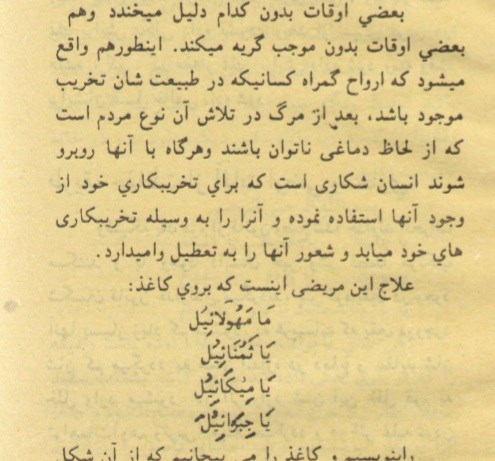 بعضي اوقات بدون کدام دلیل میخندد وهم
بعضي اوقات بدون موجب گریه میکند. اینطورهم واقع
میشود که ارواح گمراه کسانیکه در طبیعت شان تخریب
موجود باشد، بعد از مرگ در تلاش آن نوع مردم است
که از لحاظ دماغی ناتوان باشند وهرگاه با آنها روبرو
شوند انسان شکاری است که براي تخریبکاري خود از
وجود آنها استفاده نموده و آنرا را به وسیله تخریبکاری
هاي خود میابد و شعور آنها را به تعطیل وامیدارد.
علاج این مریضی اینست که بروي کاغذ:
مَا مَهُولَائِيُل
يَا ثَمُنَائِيُل
يَا مِيْكَائِيُل
يَا جِبَوَائِيُل
رابنویسیم و کاغذ را می پیچانیم که از آن شکل